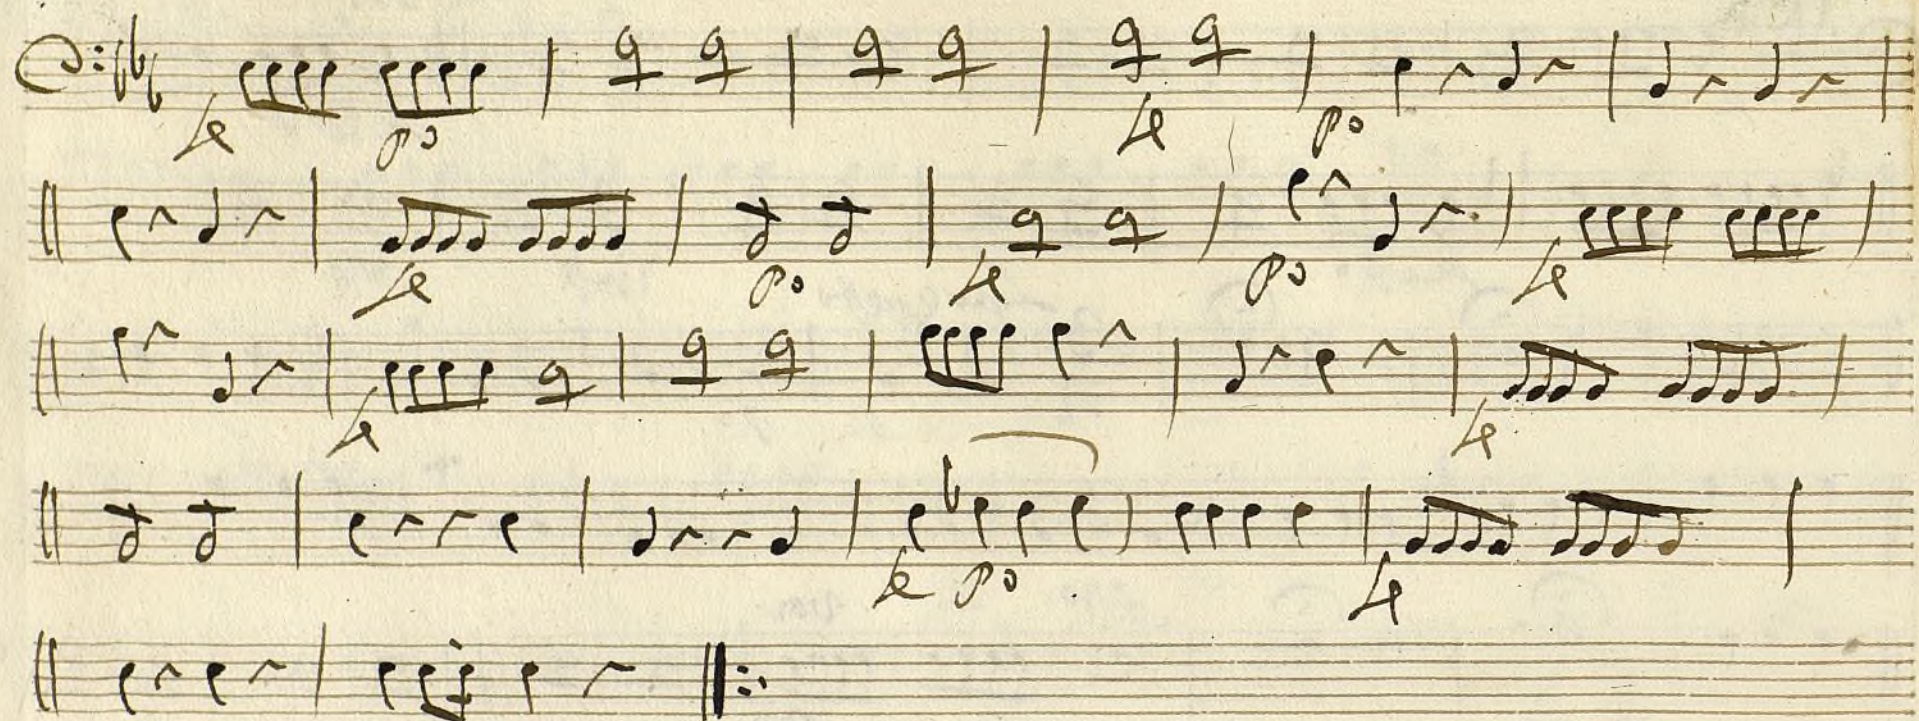 fe po fe po
fe po fe po fe
fe fe
fe po fe